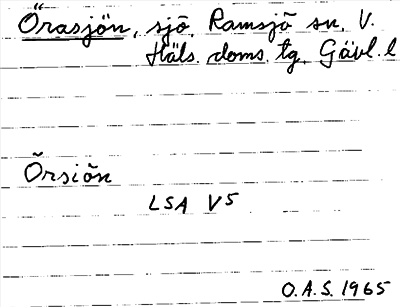 Örasjön, sjö, Ramsjö sn, V.
Häls. doms. tg, Gävl. l
Örsiön
LSA V5
O.A.S. 1965